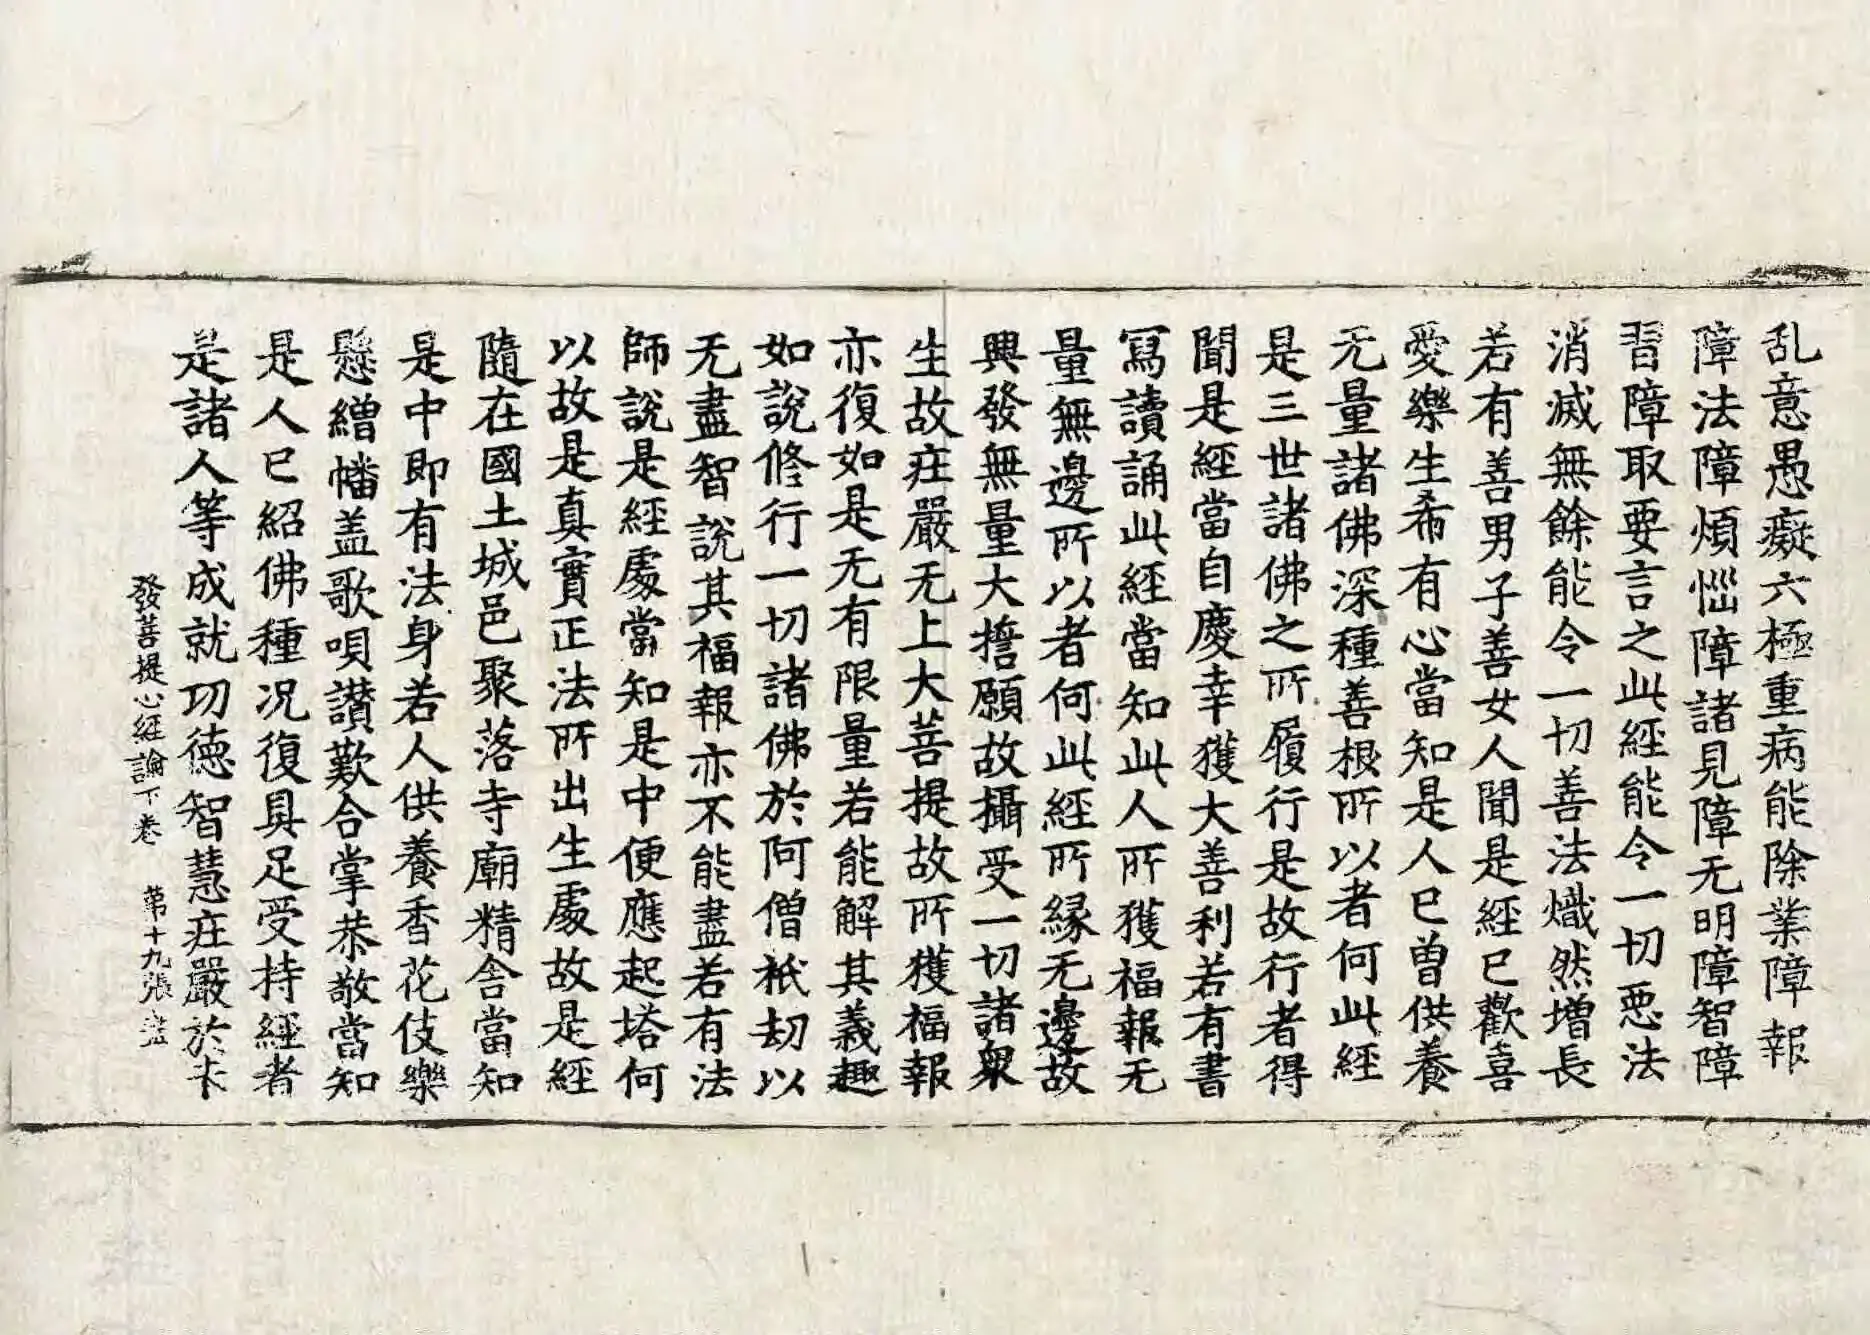 乱意愚癡六極重病能除業障報
障法障煩惱障諸見障无明障智障
習障取要言之此經能令一切惡法
消滅無餘能令一切善法熾然増長
若有善男子善女人聞是經已歡喜
愛樂生希有心當知是人已曽供養
无量諸佛深種善根所以者何此經
是三世諸佛之所履行是故行者得
聞是經當自慶幸獲大善利若有書
寫讀誦此經當知此人所獲福報无
量無邊所以者何此經所緣无邊故
興發無量大擔願故攝受一切諸衆
生故庄嚴无上大菩提故所獲福報
亦復如是无有限量若能解其義趣
如說修行一切諸佛於阿僧祇劫以
无盡智說其福報亦不能盡若有法
師說是經處當知是中便應起塔何
以故是真實正法所出生處故是經
隨在國土城邑聚落寺廟精舍當知
是中即有法身若人供養香花伎樂
懸繒幡盖歌唄讃歎合掌恭敬當知
是人已紹佛種况復具足受持經者
是諸人等成就功德智慧庄嚴於未
發菩提心經論下卷 第十九張 盖